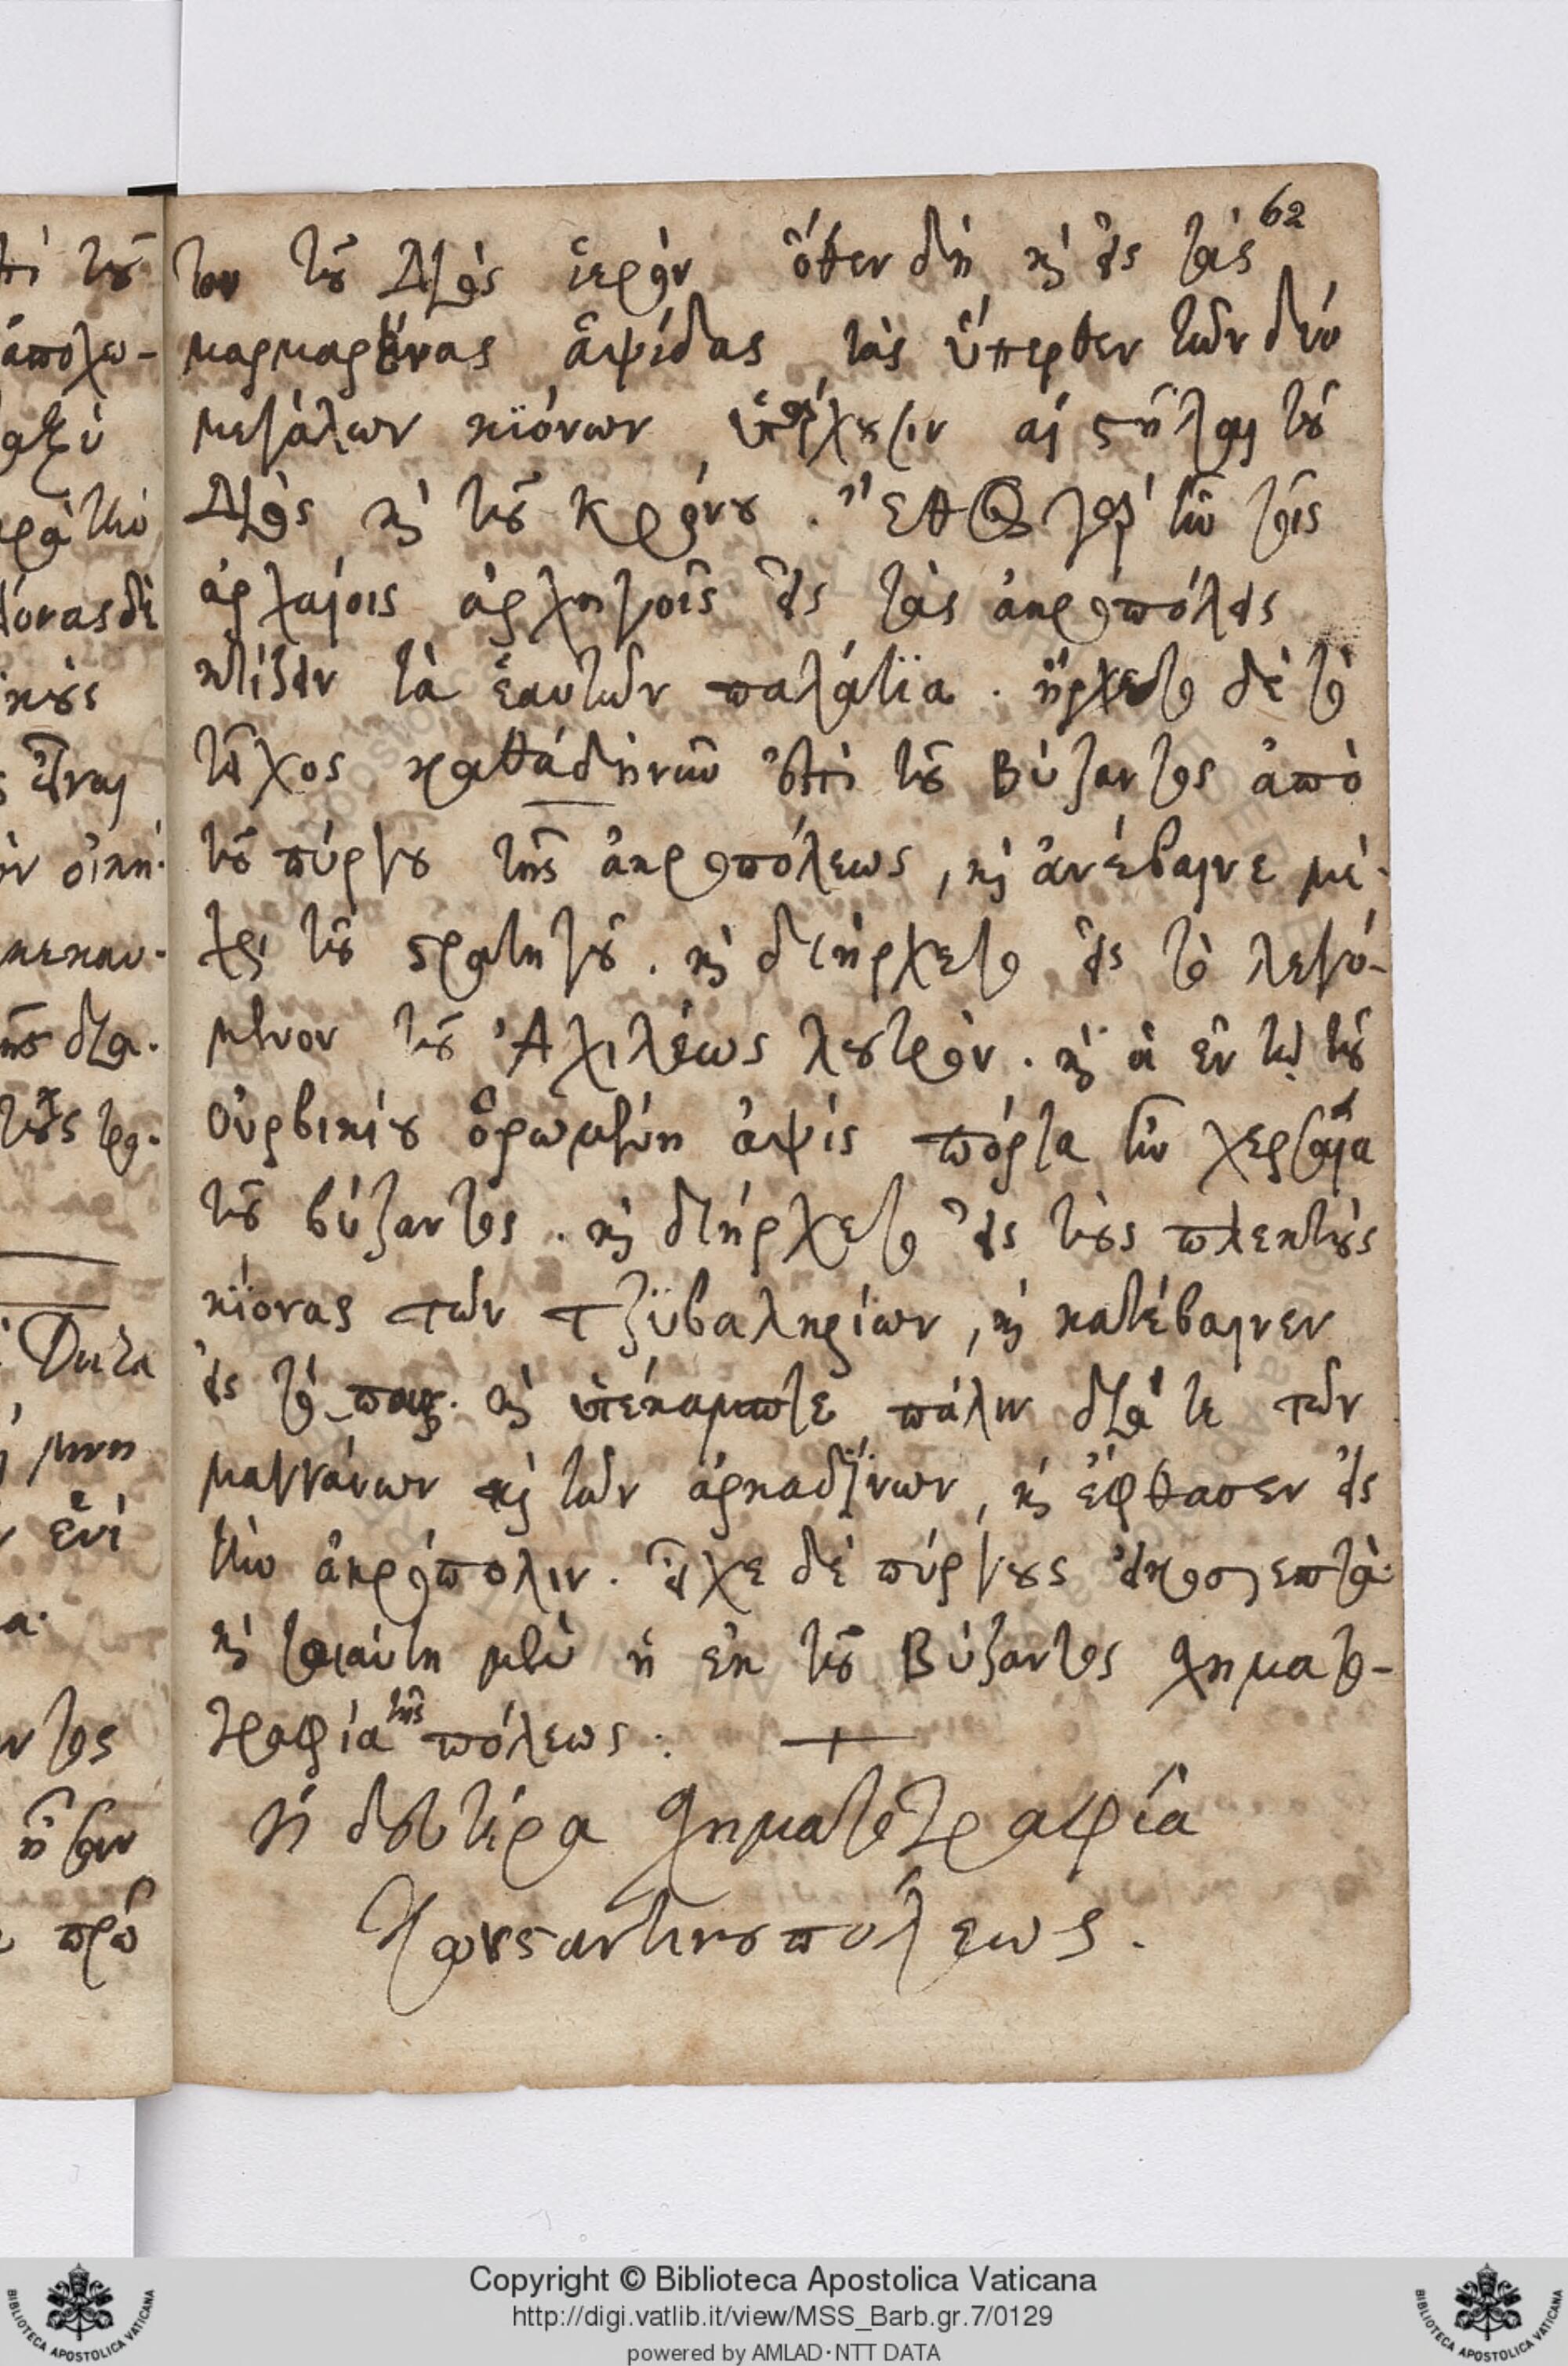 62
τον τοῦ Διὸς ἱερὸν ὅθεν δὴ καὶ εἰς τὰς
μαρμαρίνας ἁψίδας τὰς ὕπερθεν τῶν δύο
μεγάλων κϊόνων ὑπάρχουσιν αἱ στήλαι τοῦ
Διὸς καὶ τοῦ Κρόνου. Ἔθος γὰρ ἦν τοῖς
ἀρχαίοις ἀρχηγοῖς εἰς τὰς ἀκροπόλεις
κτίζειν τὰ ἑαυτῶν παλάτϊα. ἤρχετο δὲ τὸ
τεῖχος καθὰ δὴ νῦν ἐπὶ τοῦ Βύζαντος ἀπὸ
τοῦ πύργου τῆς ἀκροπόλεως, καὶ ἀνέβαινε μέ-
χρι τοῦ στρατηγοῦ. καὶ διήρχετο εἰς τὸ λεγό-
μενον τοῦ Ἀχιλέως λουτρὸν. καὶ ἁ ἐν τῷ τοῦ
οὐρβικίου ὁρωμένη ἁψὶς πόρτα ἦν χερσαία
τοῦ βύζαντος. καὶ διήρχετο εἰς τοὺς πλεκτοὺς
κϊόνας τῶν τζϋβαληρίων, καὶ κατέβαινεν
εἰς καὶ ὑπέκαμπτε πάλιν διά τε τῶν
μαγγάνων καὶ τῶν ἀρκαδϊάνων, καὶ ἔφθασεν εἰς
τὴν ἀκρόπολιν. εἶχε δὲ πύργους εἰκοσιεπτὰ.
καὶ τοιαύτη μὲν ἡ ἐκ τοῦ Βύζαντος σχηματο-
γραφία τῆς πόλεως: +
Ἡ δευτέρα σχηματογραφία
Κωνσταντινουπόλεως.
Copyright © Biblioteca Apostolica Vaticana
http://digi.vatlib.it/view/MSS_Barb.gr.7/0129
powered by AMLAD·NTT DATA
BIBLIOTECA APOSTOLICA VATICANA
BIBLIOTECA APOSTOLICA VATICANA